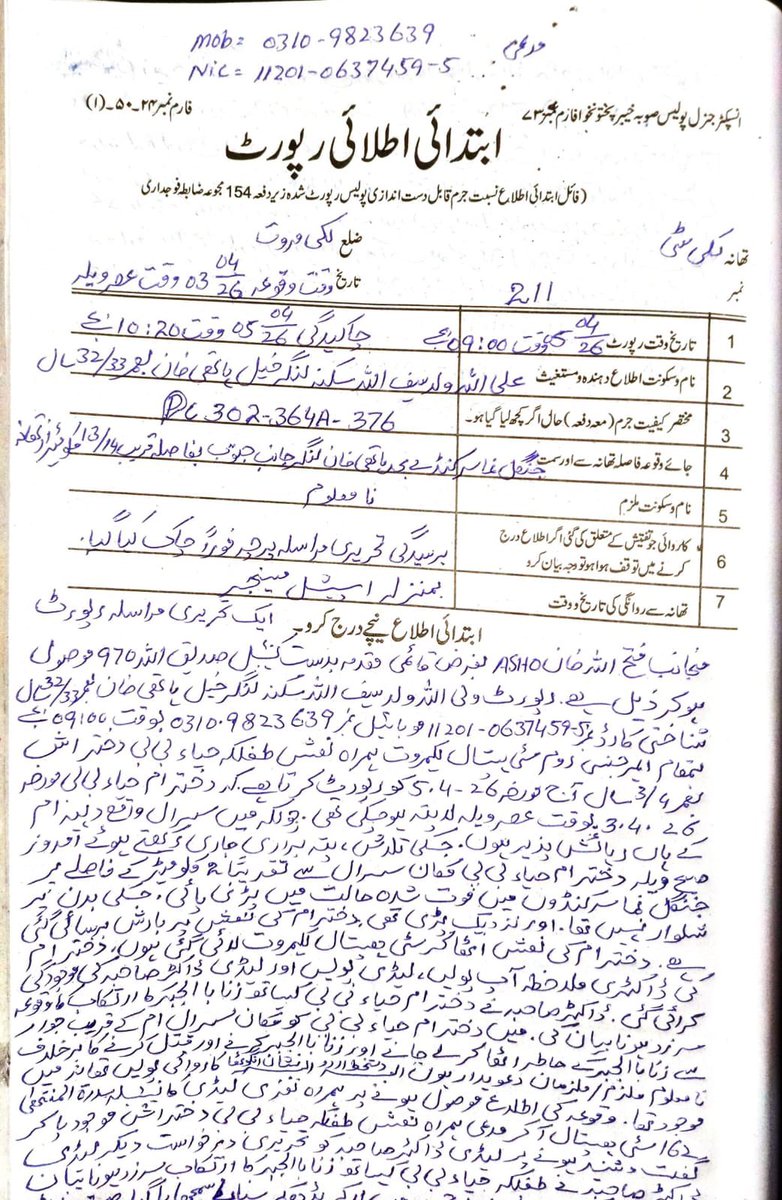 Mob= 0310-9823639
مدعی
Nic= 11201-0637459-5
انسپکٹر جنرل پولیس صوبہ خیبر پختونخوا فارم نمبر ۷۳
فارم نمبر ۲۴-۵۰۔(۱)
ابتدائی اطلائی رپورٹ
(فائل ابتدائی اطلاع نسبت جرم قابل دست اندازی پولیس رپورٹ شدہ زیر دفعہ 154 مجموعہ ضابطہ فوجداری)
تھانہ لکی سٹی ضلع لکی مروت
نمبر 211 تاریخ وقت وقوعہ 03 04/26 وقت عصر ویلہ
1 تاریخ وقت رپورٹ 05 04/26 وقت 09:00 بجے چاکیدگی 05 04/26 وقت 10:20 بجے
2 نام و سکونت اطلاع دھندہ و مستغیث علی اللہ ولد سیف اللہ سکنہ لنگر خیل ہاتھی خان بعمر 32/33 سال
3 مختصر کیفیت جرم (معہ دفعہ) حال اگر کچھ لیا گیا ہو۔ PC 302-364A-376
4 جائے وقوعہ فاصلہ تھانہ سے اور سمت جنگل نما سرکنڈے بحد ہاتھی خان لنگر جانب جنوب بفاصلہ قریب 13/14 کلومیٹر از تھانہ
5 نام و سکونت ملزم نامعلوم
6 کاروائی جو تفتیش کے متعلق کی گئی اگر اطلاع درج کرنے میں توقف ہوا ہو تو وجہ بیان کرو برسیدگی تحریری مراسلہ پرچہ فوراً چاک کیا گیا.
7 تھانہ سے روانگی کی تاریخ و وقت بمنزلہ اسپیشل مینجیر
ابتدائی اطلاع نیچے درج کرو۔ ایک تحریری مراسلہ رپورٹ
منجانب فتح اللہ خان ASHO بغرض قائمی مقدمہ بدست کنسٹیبل صدیق اللہ 970 موصول
ہو کر ذیل ہے. رپورٹ ولی اللہ ولد سیف اللہ سکنہ لنگر خیل ہاتھی خان بعمر 32/33 سال
شناختی کارڈ نمبر 11201-0637459-5 موبائیل نمبر 0310.9823639 بوقت 09:00 بجے
بمقام ایمرجنسی روم سٹی ہسپتال لکیمروت ہمراہ نعش طفلکہ حیاء بی بی دختر اش
بعمر 3/4 سال آج مورخہ 26-4-5 کو رپورٹ کرتا ہے کہ دختر ام حیاء بی بی مورخہ
26.4.3 بوقت عصر ویلہ لاپتہ ہو چکی تھی. چونکہ میں سسرال واقع دیہہ ام
کے ہاں رہائش پذیر ہوں. جسکی تلاش، پتہ براری جاری رکھتے ہوئے آمروز
صبح ویلہ دختر ام حیاء بی بی مکان سسرال سے تقریباً کلومیٹر کے فاصلے پر
جنگل نما سرکنڈوں میں فوت شدہ حالت میں پڑی پائی. جسکی بدن پر
شلوار نہیں تھا. اور نزدیک پڑی تھی. دختر ام کی نعش پر بارش برسائی گئی
ہے. دختر ام کی نعش اٹھا کر سٹی ہسپتال لکیمروت لائی گئی ہوں. دختر ام
کی ڈاکٹری ملاحظہ آپ پولیس، لیڈی پولیس اور لیڈی ڈاکٹر صاحبہ کی موجودگی
کرائی گئی. ڈاکٹر صاحبہ نے دختر ام حیاء بی بی کیساتھ زنا بالجبر کا ارتکاب کا وقوعہ
سرزد ہونا بیان کی. میں دختر ام حیاء بی بی کو مکان سسرال ام کے قریب جوار
سے زنا بالجبر کے خاطر اغوا کر لے جانے اور زنا بالجبر کرنے اور قتل کرنے کا برخلاف
نامعلوم ملزم/ملزمان دعویدار ہوں کاروائی پولیس تھانہ میں
موجود تھا. وقوعہ کی اطلاع موصول ہونے پر ہمراہ نفری لیڈی کانسٹیبلہ سدرۃ المنتھیٰ
سٹی ہسپتال آ کر مدعی ہمراہ نعش طفلکہ حیاء بی بی دختر اش موجود پا کر
ہونے پر لیڈی ڈاکٹر صاحبہ کو تحریری درخواست دیکر لیڈی
ڈاکٹر صاحبہ نے طفلکہ حیاء بی بی کیساتھ زنا بالجبر کا ارتکاب سرزد ہونا بیان